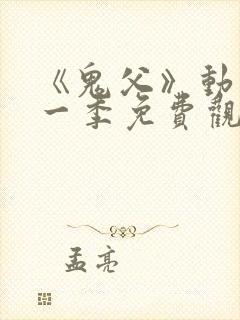 《鬼父》動
一季免費觀
孟亮